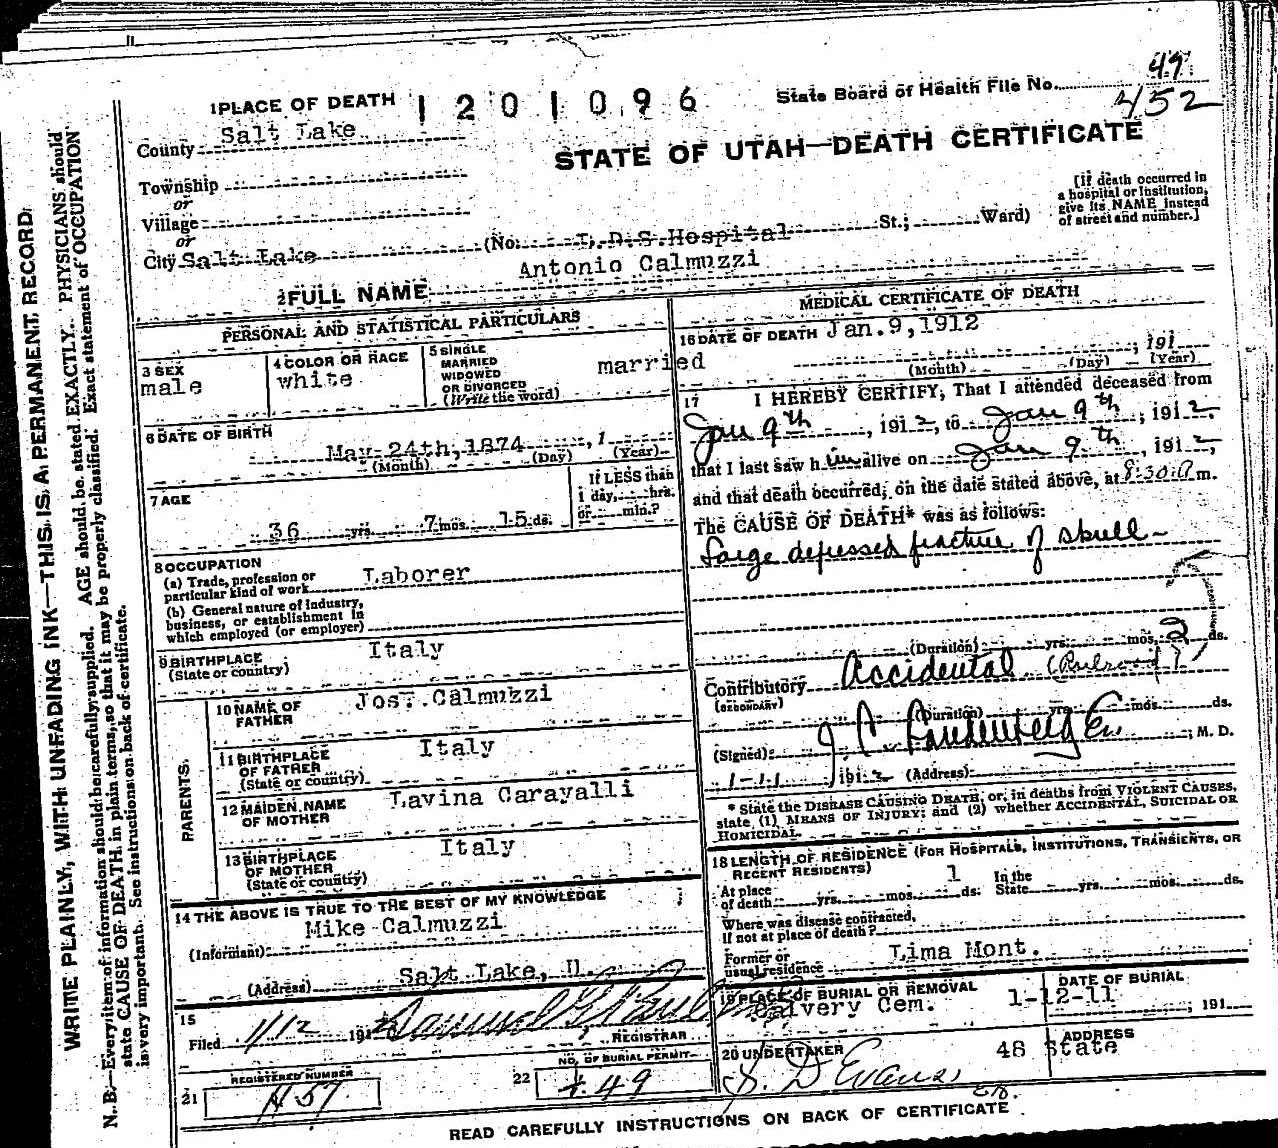 49
1 PLACE OF DEATH 1201096 State Board of Health File No. 452
County Salt Lake
STATE OF UTAH—DEATH CERTIFICATE
Township
or
Village
or
City Salt Lake (No. L.D.S.Hospital St.; Ward)
[If death occurred in
a hospital or institution,
give its NAME instead
of street and number.]
2 FULL NAME Antonio Calmuzzi
PERSONAL AND STATISTICAL PARTICULARS
3 SEX
male
4 COLOR OR RACE
white
5 SINGLE
MARRIED
WIDOWED
OR DIVORCED
(Write the word)
married
6 DATE OF BIRTH
May 24th, 1874, 1
(Month) (Day) (Year)
7 AGE
36 yrs. 7 mos. 15 ds.
If LESS than
1 day, hrs.
or min.?
8 OCCUPATION
(a) Trade, profession or
particular kind of work Laborer
(b) General nature of Industry,
business, or establishment in
which employed (or employer)
9 BIRTHPLACE
(State or country)
Italy
PARENTS.
10 NAME OF
FATHER
Jos. Calmuzzi
11 BIRTHPLACE
OF FATHER
(State or country)
Italy
12 MAIDEN NAME
OF MOTHER
Lavina Caravalli
13 BIRTHPLACE
OF MOTHER
(State or country)
Italy
14 THE ABOVE IS TRUE TO THE BEST OF MY KNOWLEDGE
(Informant) Mike Calmuzzi
(Address) Salt Lake, U.
15
Filed 1/12 191 Samuel G. Paul
REGISTRAR
21 REGISTERED NUMBER
457
22 NO. OF BURIAL PERMIT
49
MEDICAL CERTIFICATE OF DEATH
16 DATE OF DEATH Jan.9,1912
, 191
(Month) (Day) (Year)
17 I HEREBY CERTIFY, That I attended deceased from
Jan 9th, 1912, to Jan 9th, 1912.
that I last saw him alive on Jan 9th, 1912,
and that death occurred, on the date stated above, at 8:30 m.
The CAUSE OF DEATH* was as follows:
Large depressed fracture of skull
(Duration) yrs. mos. 2 ds.
Contributory Accidental (Railroad?)
(SECONDARY)
(Duration) yrs. mos. ds.
(Signed) J C , M. D.
1-11, 1912 (Address)
* State the DISEASE CAUSING DEATH, or, in deaths from VIOLENT CAUSES,
state (1) MEANS OF INJURY; and (2) whether ACCIDENTAL, SUICIDAL OR
HOMICIDAL.
18 LENGTH OF RESIDENCE (FOR HOSPITALS, INSTITUTIONS, TRANSIENTS, OR
RECENT RESIDENTS)
At place
of death yrs. mos. 1 ds.
In the
State yrs. mos. ds.
Where was disease contracted,
If not at place of death?
Former or
usual residence Lima Mont.
19 PLACE OF BURIAL OR REMOVAL
Calvery Cem.
DATE OF BURIAL
1-12-11
, 191
20 UNDERTAKER
S. D Evans
ADDRESS
48 State
READ CAREFULLY INSTRUCTIONS ON BACK OF CERTIFICATE
WRITE PLAINLY, WITH UNFADING INK—THIS IS A PERMANENT RECORD
N. B.—Every item of information should be carefully supplied. AGE should be stated EXACTLY. PHYSICIANS should
state CAUSE OF DEATH in plain terms, so that it may be properly classified. Exact statement of OCCUPATION
is very important. See instructions on back of certificate.